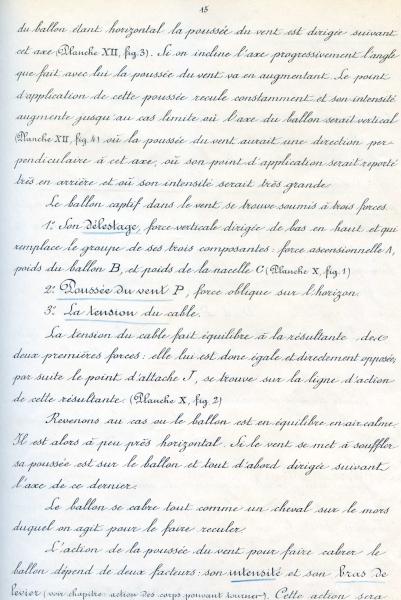 15
du ballon étant horizontal la poussée du vent est dirigée suivant
cet axe (Planche XII, fig. 3). Si on incline l'axe progressivement l'angle
que fait avec lui la poussée du vent va en augmentant. Le point
d'application de cette poussée recule constamment et son intensité
augmente jusqu'au cas limite où l'axe du ballon serait vertical
(Planche XII, fig. 4) où la poussée du vent aurait une direction per-
pendiculaire à cet axe, où son point d'application serait reporté
très en arrière et où son intensité serait très grande
Le ballon captif dans le vent se trouve soumis à trois forces.
1° Son délestage, force verticale dirigée de bas en haut et qui
remplace le groupe de ses trois composantes : force ascensionnelle A,
poids du ballon B, et poids de la nacelle C (Planche X, fig. 1)
2° Poussée du vent P, force oblique sur l'horizon.
3° La tension du cable.
La tension du cable fait équilibre à la résultante des
deux premières forces : elle lui est donc égale et directement opposée,
par suite le point d'attache T, se trouve sur la ligne d'action
de cette résultante. (Planche X, fig. 2)
Revenons au cas ou le ballon est en équilibre en air calme.
Il est alors à peu près horizontal. Si le vent se met à souffler
sa poussée est sur le ballon et tout d'abord dirigée suivant
l'axe de ce dernier.
Le ballon se cabre tout comme un cheval sur le mors
duquel on agit pour le faire reculer.
L'action de la poussée du vent pour faire cabrer le
ballon dépend de deux facteurs : son intensité et son bras de
levier (voir chapitre : action des corps pouvant tourner). Cette action sera